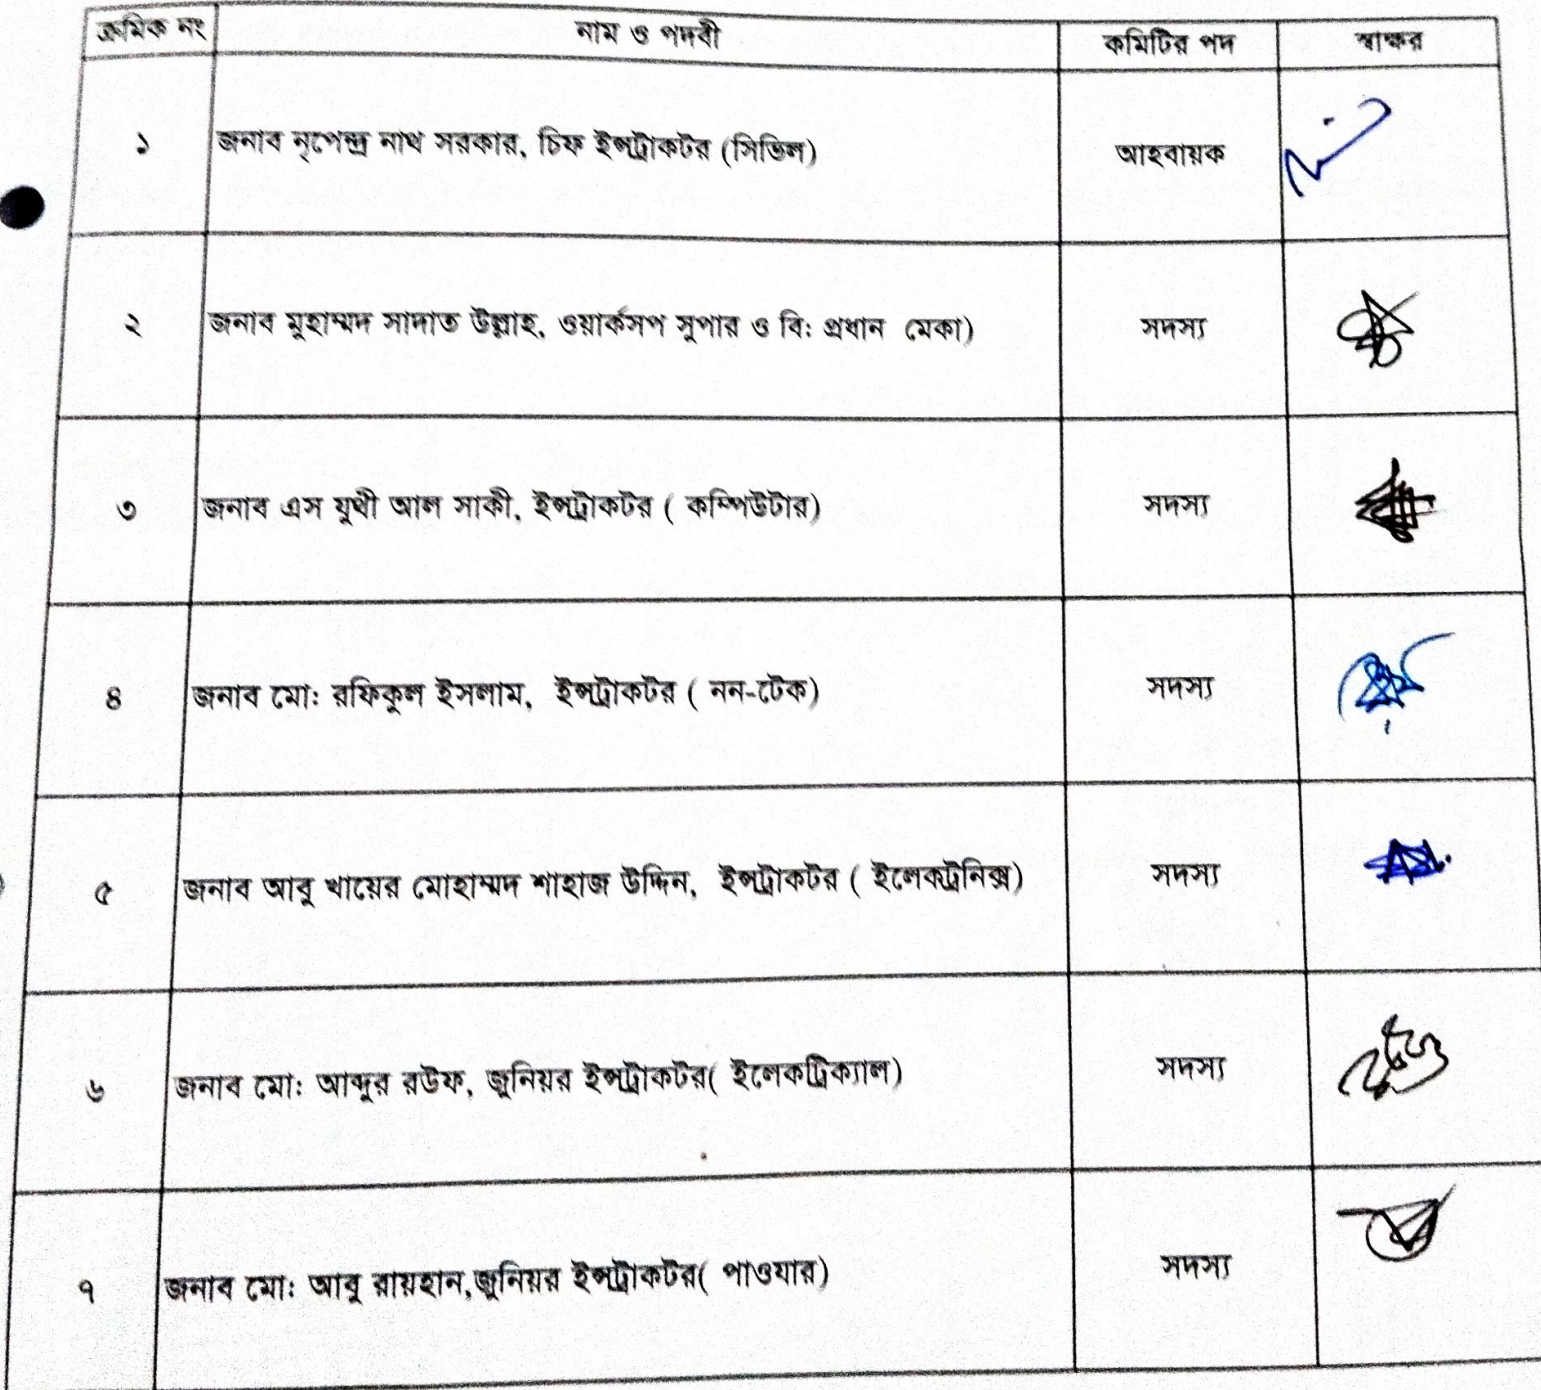 ক্রমিক নং নাম ও পদবী কমিটির পদ স্বাক্ষর
১ জনাব নৃপেন্দ্র নাথ সরকার, চিফ ইন্সট্রাকটর (সিভিল) আহবায়ক
২ জনাব মুহাম্মদ সাদাত উল্লাহ, ওয়ার্কসপ সুপার ও বি: প্রধান মেকা) সদস্য
৩ জনাব এস যুথী আল সাকী, ইন্সট্রাকটর ( কম্পিউটার) সদস্য
৪ জনাব মো: রফিকুল ইসলাম, ইন্সট্রাকটর ( নন-টেক) সদস্য
৫ জনাব আবু খায়ের মোহাম্মদ শাহাজ উদ্দিন, ইন্সট্রাকটর ( ইলেকট্রনিক্স) সদস্য
৬ জনাব মো: আব্দুর রউফ, জুনিয়র ইন্সট্রাকটর( ইলেকট্রিক্যাল) সদস্য
৭ জনাব মো: আবু রায়হান,জুনিয়র ইন্সট্রাকটর( পাওযার) সদস্য